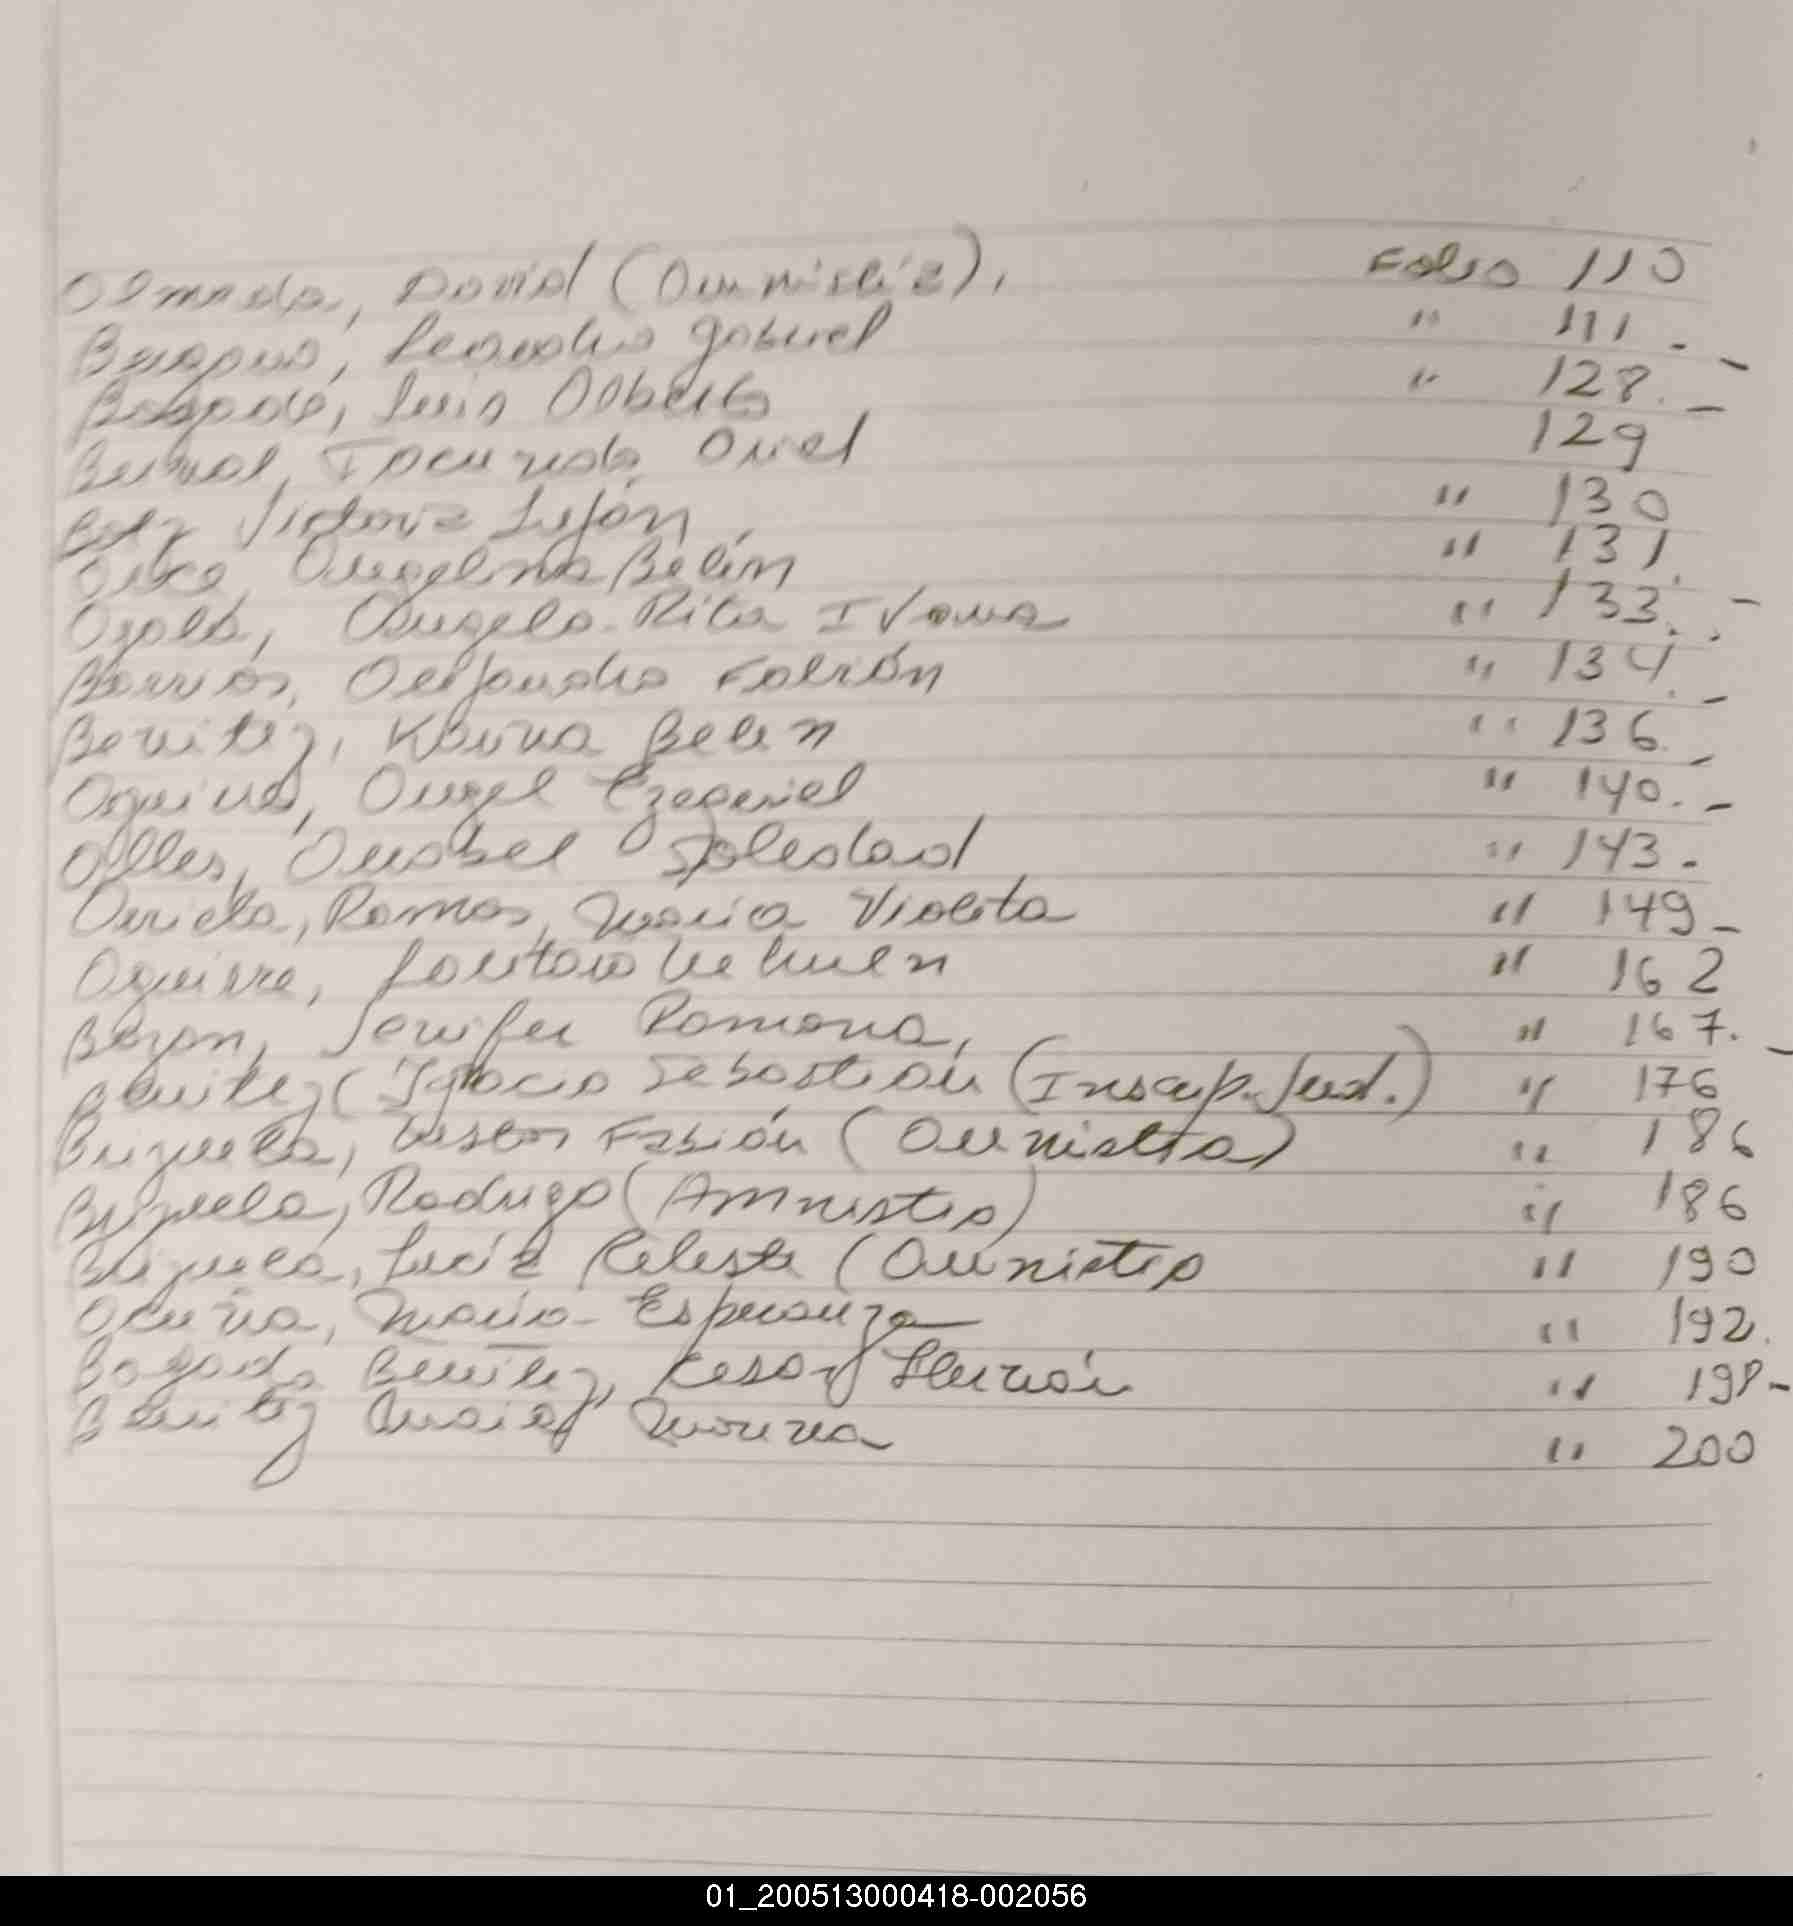 Almada, David (Amnistía), Folio 110
Burgos, Leandro Gabriel " 111.-
Bogado, Luis Alberto " 128.-
Bernal, Facundo Ariel 129
Victoria Luján " 130
Arce, Angelina Belén " 131
Ayala, Angela Rita Ivana " 133.-
Barrios, Alejandro Fabián " 134.-
Benitez, Karina Belen " 136.-
Aquino, Angel Ezequiel " 140.-
Alles, Anabel Soledad " 143.-
Arrieta, Ramos, Maria Violeta " 149-
Aguirre, Lautaro Nehuen " 162
Bazan, Jenifer Ramona, " 167.-
Benitez, Ignacio Sebastian (Inscrip. Jud.) " 176
Brizuela, Nestor Fabián (Amnistia) " 186
Brizuela, Rodrigo (Amnistia) " 186
Brizuela, Lucía Celeste (Amnistia " 190
Acuña, Maria Esperanza " 192.
Bogado Benitez, Cesar Hernán " 198-
Benitez Maria Morena " 200
01_200513000418-002056